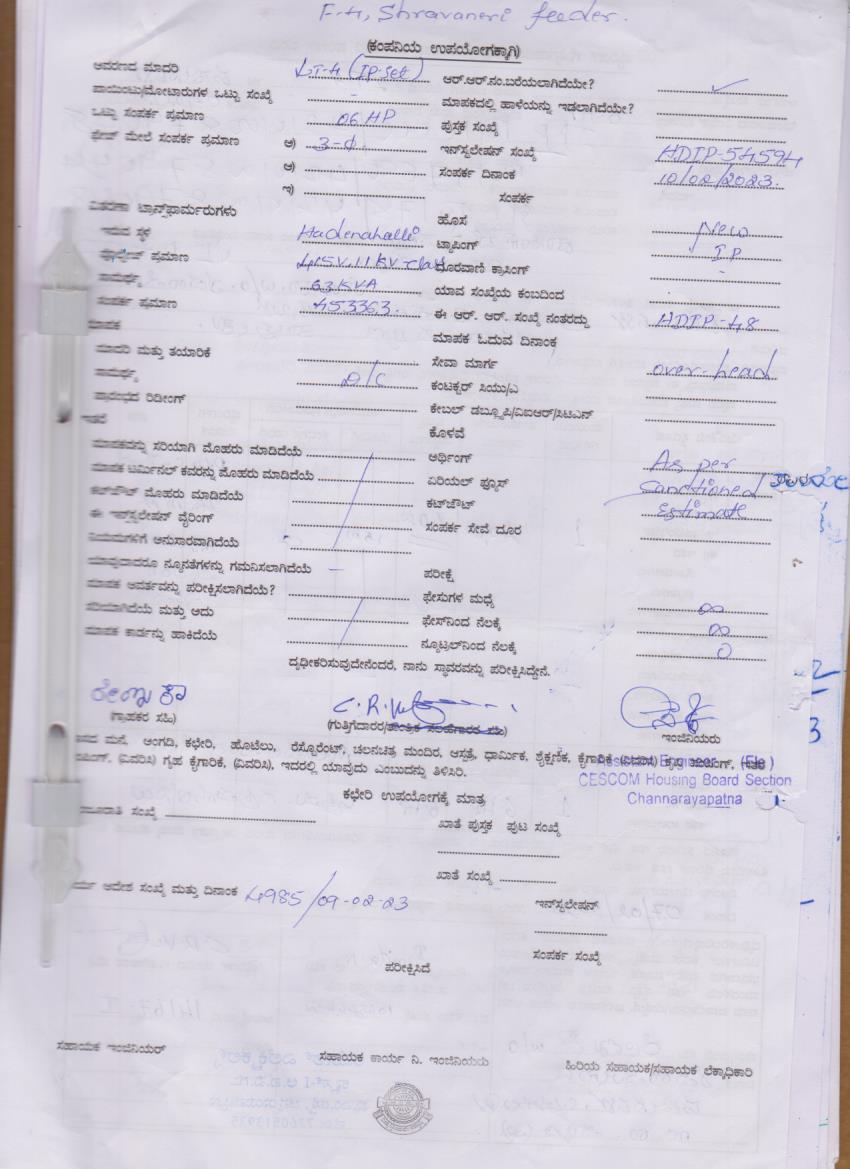 F-4, Shravaneri feeder.
(ಕಂಪನಿಯ ಉಪಯೋಗಕ್ಕಾಗಿ)
ಆವರಣದ ಮಾದರಿ LT-4 (IP-Set) ಆರ್.ಆರ್.ನಂ.ಬರೆಯಲಾಗಿದೆಯೇ? ✓
ಪಾಯಿಂಟು/ಮೋಟಾರುಗಳ ಒಟ್ಟು ಸಂಖ್ಯೆ - ಮಾಪಕದಲ್ಲಿ ಹಾಳೆಯನ್ನು ಇಡಲಾಗಿದೆಯೇ?
ಒಟ್ಟು ಸಂಪರ್ಕ ಪ್ರಮಾಣ 06 HP ಪುಸ್ತಕ ಸಂಖ್ಯೆ
ಫೇಸ್ ಮೇಲೆ ಸಂಪರ್ಕ ಪ್ರಮಾಣ ಅ) 3-Φ ಇನ್‌ಸ್ಟಲೇಷನ್ ಸಂಖ್ಯೆ HDIP-54594
ಆ) ಸಂಪರ್ಕ ದಿನಾಂಕ 10/02/2023.
ಇ) ಸಂಪರ್ಕ
ವಿತರಣಾ ಟ್ರಾನ್ಸ್‌ಫಾರ್ಮರುಗಳು ಹೊಸ New
ಇರುವ ಸ್ಥಳ Hadenahalli ಟ್ಯಾಪಿಂಗ್ I P
ಪ್ರಮಾಣ 415V.11KV ದೂರವಾಣಿ ಕ್ರಾಸಿಂಗ್ -
ಸಾಮರ್ಥ್ಯ 63 KVA ಯಾವ ಸಂಖ್ಯೆಯ ಕಂಬದಿಂದ
ಸಂಪರ್ಕ ಪ್ರಮಾಣ 453363. ಈ ಆರ್. ಆರ್. ಸಂಖ್ಯೆ ನಂತರದ್ದು HDIP-48
ಮಾಪಕ ಮಾಪಕ ಓದುವ ದಿನಾಂಕ
ಮಾದರಿ ಮತ್ತು ತಯಾರಿಕೆ ಸೇವಾ ಮಾರ್ಗ over-head
ಸಾಮರ್ಥ್ಯ D/C ಕಂಟಕ್ಟರ್ ಸಿಯು/ಎ
ಪ್ರಾರಂಭದ ರಿಡೀಂಗ್ ಕೇಬಲ್ ಡಬ್ಲ್ಯೂಪಿ/ವಿಐಆರ್/ಸಿಟಿಎನ್
ಇತರೆ ಕೊಳವೆ
ಮಾಪಕವನ್ನು ಸರಿಯಾಗಿ ಮೊಹರು ಮಾಡಿದೆಯೆ ಅರ್ಥಿಂಗ್ As per
ಮಾಪಕ ಟರ್ಮಿನಲ್ ಕವರನ್ನು ಮೊಹರು ಮಾಡಿದೆಯೆ ಏರಿಯಲ್ ಫ್ಯೂಸ್ Sanctioned
ಕಟ್‌ಔಟ್ ಮೊಹರು ಮಾಡಿದೆಯೆ ಕಟ್‌ಔಟ್ Estimate
ಈ ಇನ್‌ಸ್ಟಲೇಷನ್ ವೈರಿಂಗ್ ಸಂಪರ್ಕ ಸೇವೆ ದೂರ
ನಿಯಮಗಳಿಗೆ ಅನುಸಾರವಾಗಿದೆಯೆ
ಯಾವುದಾದರೂ ನ್ಯೂನತೆಗಳನ್ನು ಗಮನಿಸಲಾಗಿದೆಯೆ - ಪರೀಕ್ಷೆ
ಮಾಪಕ ಆವರ್ತವನ್ನು ಪರೀಕ್ಷಿಸಲಾಗಿದೆಯೆ? ಫೇಸುಗಳ ಮಧ್ಯೆ ∞
ಸರಿಯಾಗಿದೆಯೆ ಮತ್ತು ಅದು ಫೇಸ್‌ನಿಂದ ನೆಲಕ್ಕೆ ∞
ಮಾಪಕ ಕಾರ್ಡನ್ನು ಹಾಕಿದೆಯೆ ನ್ಯೂಟ್ರಲ್‌ನಿಂದ ನೆಲಕ್ಕೆ 0
ದೃಢೀಕರಿಸುವುದೇನೆಂದರೆ, ನಾನು ಸ್ಥಾವರವನ್ನು ಪರೀಕ್ಷಿಸಿದ್ದೇನೆ.
(ಗ್ರಾಹಕರ ಸಹಿ) (ಗುತ್ತಿಗೆದಾರರ ಇಂಜಿನಿಯರು
ಮನೆ, ಅಂಗಡಿ, ಕಛೇರಿ, ಹೊಟೆಲು, ರೆಸ್ಟೋರೆಂಟ್, ಚಲನಚಿತ್ರ ಮಂದಿರ, ಆಸ್ಪತ್ರೆ, ಧಾರ್ಮಿಕ, ಶೈಕ್ಷಣಿಕ, ಕೈಗಾರಿಕೆ (ವಿವರಿಸಿ)
(ವಿವರಿಸಿ) ಗೃಹ ಕೈಗಾರಿಕೆ, (ವಿವರಿಸಿ), ಇದರಲ್ಲಿ ಯಾವುದು ಎಂಬುದನ್ನು ತಿಳಿಸಿರಿ.
Engineer (Ele)
CESCOM Housing Board Section
Channarayapatna
ಕಛೇರಿ ಉಪಯೋಗಕ್ಕೆ ಮಾತ್ರ
ಸಂಖ್ಯೆ ಖಾತೆ ಪುಸ್ತಕ ಪುಟ ಸಂಖ್ಯೆ
ಖಾತೆ ಸಂಖ್ಯೆ
ಆದೇಶ ಸಂಖ್ಯೆ ಮತ್ತು ದಿನಾಂಕ 4985/09-02-23 ಇನ್‌ಸ್ಟಲೇಷನ್
ಸಂಪರ್ಕ ಸಂಖ್ಯೆ
ಪರೀಕ್ಷಿಸಿದೆ
ಸಹಾಯಕ ಇಂಜಿನಿಯರ್ ಸಹಾಯಕ ಕಾರ್ಯ ನಿ. ಇಂಜಿನಿಯರು ಹಿರಿಯ ಸಹಾಯಕ/ಸಹಾಯಕ ಲೆಕ್ಕಾಧಿಕಾರಿ